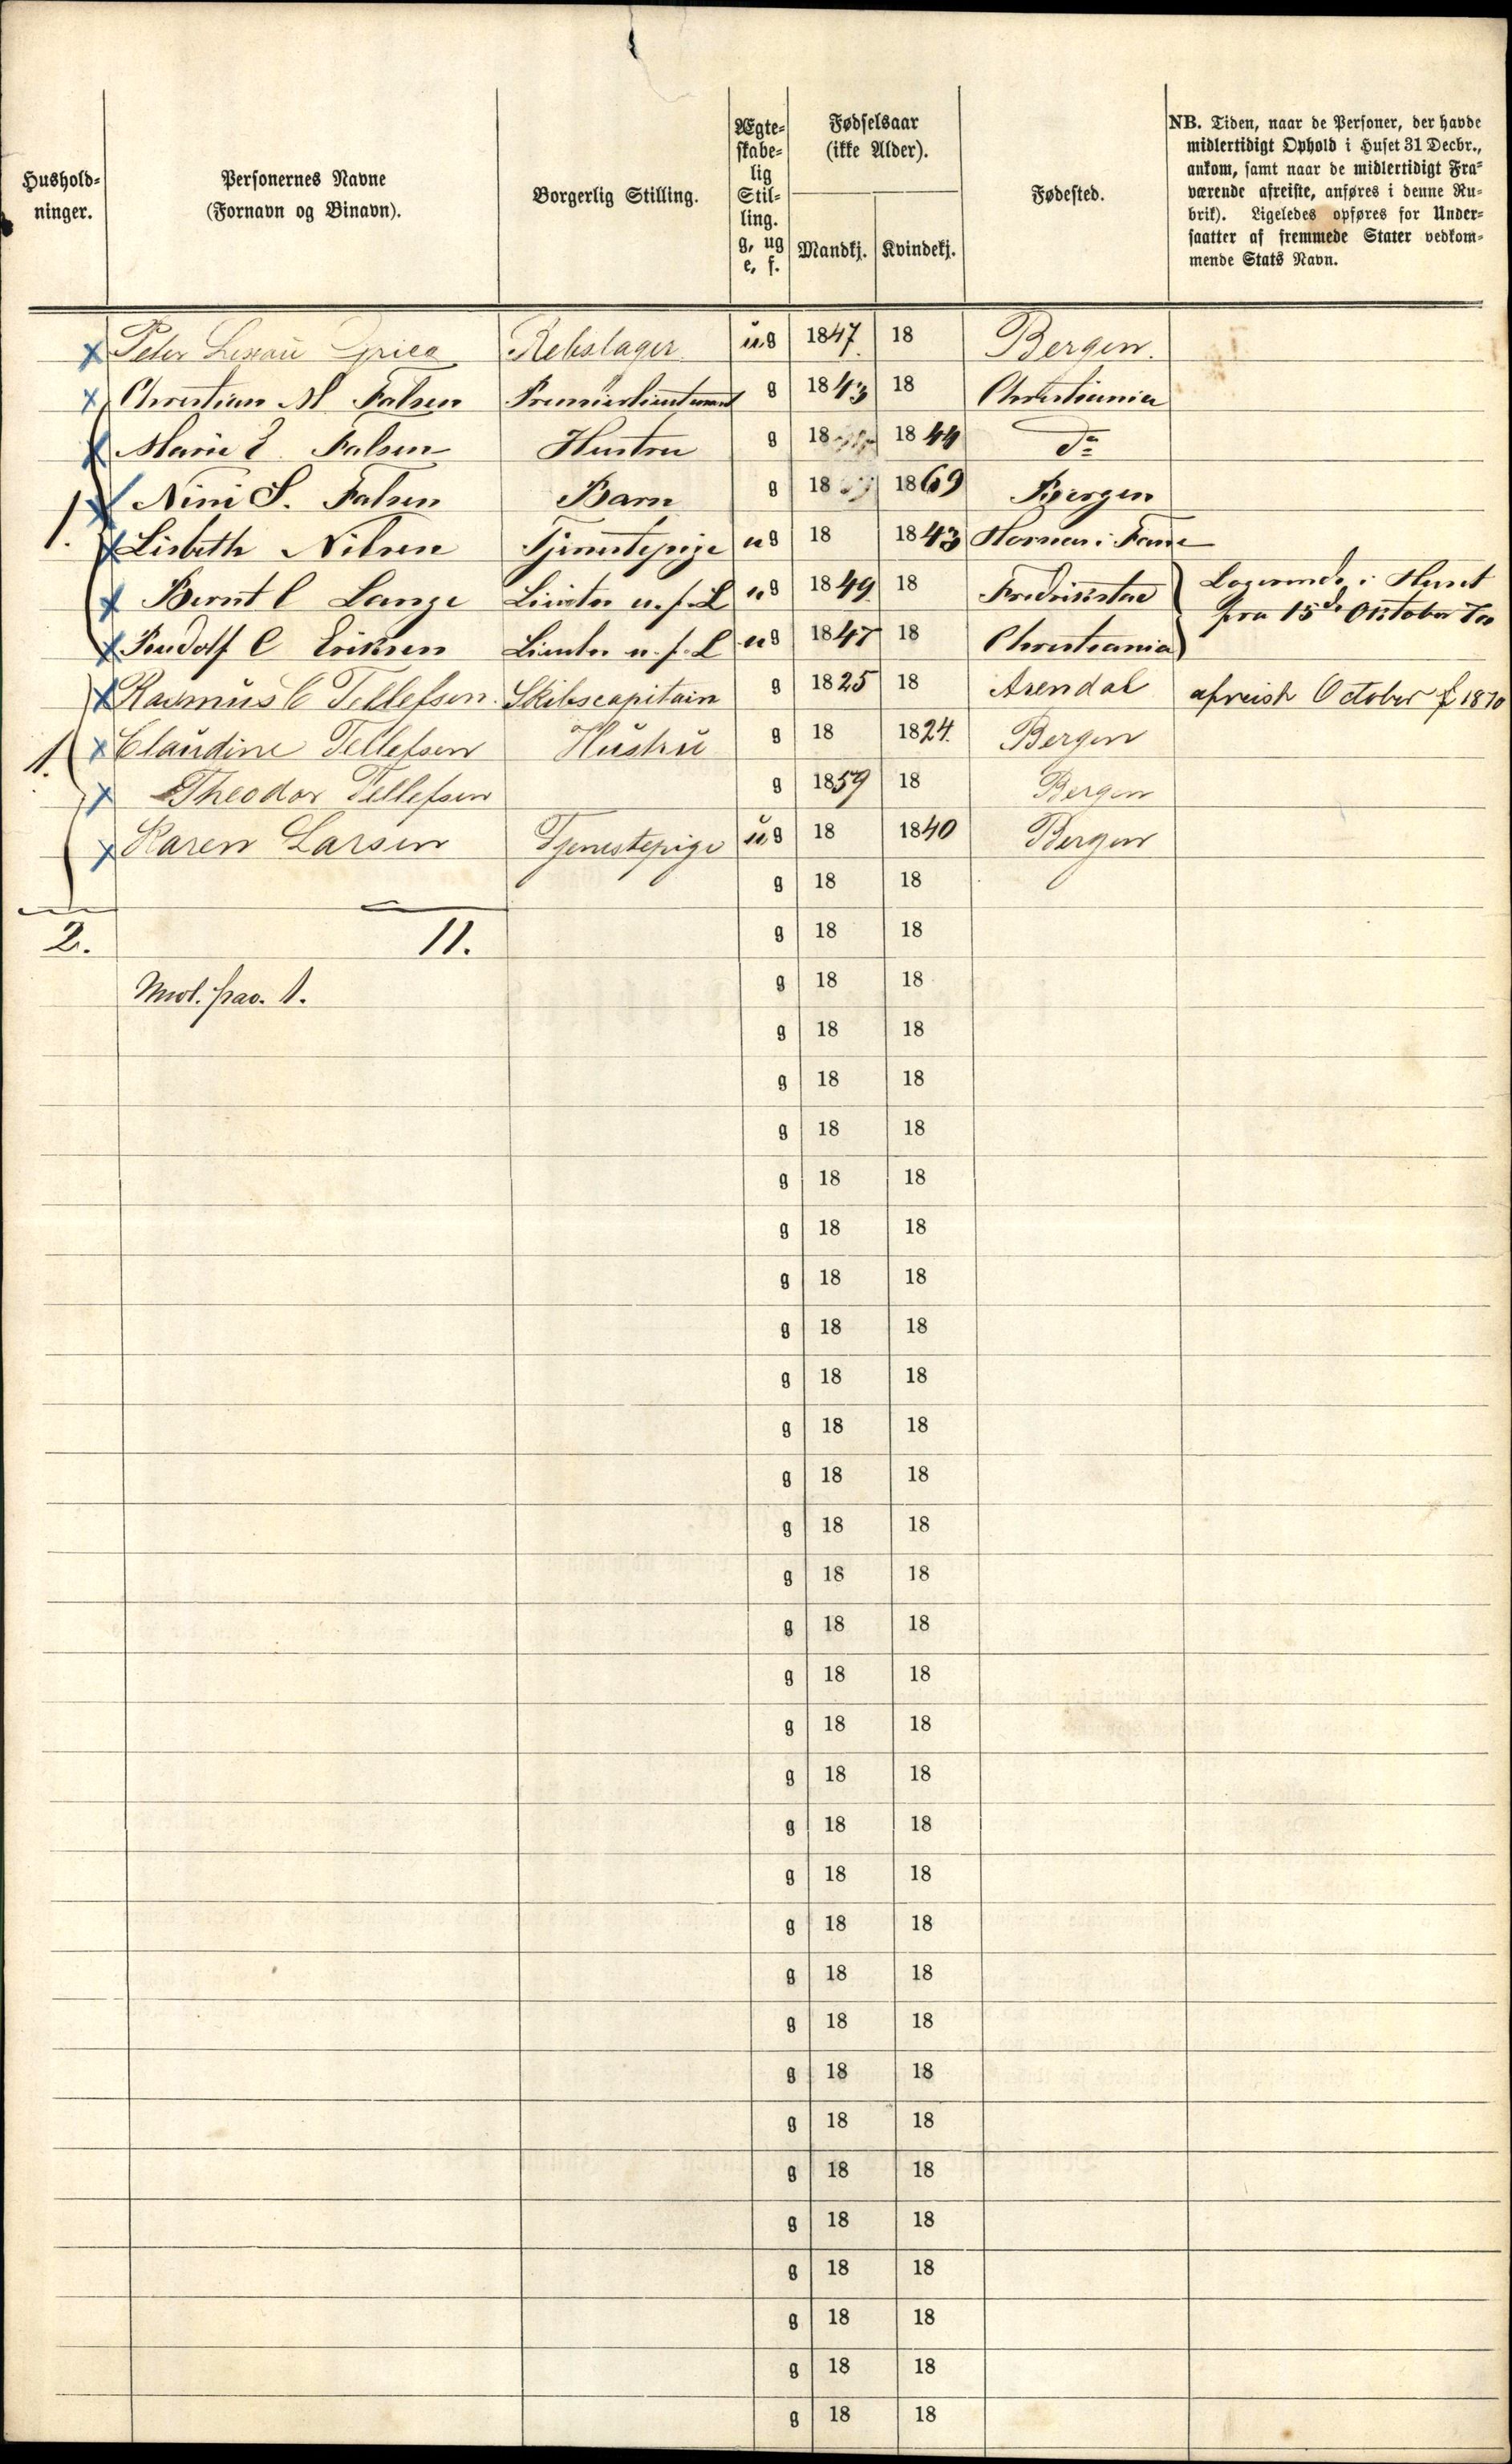 Hushold-
ninger.
Personernes Navne
(Fornavn og Binavn).
Borgerlig Stilling.
Ægte-
skabe-
lig
Stil-
ling.
g, ug
e, f.
Fødselsaar
(ikke Alder).
Mandkj.
Kvindekj.
Fødested.
NB. Tiden, naar de Personer, der havde
midlertidigt Ophold i Huset 31 Decbr.,
ankom, samt naar de midlertidigt Fra-
værende afreiste, anføres i denne Ru-
brik). Ligeledes opføres for Under-
saatter af fremmede Stater vedkom-
mende Stats Navn.
x Peter Lexau Grieg Rebslager ug 1847 18 Bergen.
x Christian M Falsen Premierlieutenant g 1843 18 Christiania
x Marie E. Falsen Hustru g 18 1844 do
1. x Nini S. Falsen Barn g 18 1869 Bergen
x Lisbeth Nilsen Tjenestepige ug 18 1843 i Fane
x Bernt C Lange u. f. L ug 1849 18 Fredrikstad Logerende i Huset
fra 15de Oktober 70
x Rudolf C Eriksen u. f. L ug 1847 18 Christiania
x Rasmus C Tellefsen. Skibscapitain g 1825 18 Arendal afreist October 1870
1. x Claudine Tellefsen Hustru g 18 1824. Bergen
x Theodor Tellefsen g 1859 18 Bergen
x Karen Larsen Tjenestepige ug 18 1840 Bergen
g 18 18
2. 11. g 18 18
g 18 18
g 18 18
g 18 18
g 18 18
g 18 18
g 18 18
g 18 18
g 18 18
g 18 18
g 18 18
g 18 18
g 18 18
g 18 18
g 18 18
g 18 18
g 18 18
g 18 18
g 18 18
g 18 18
g 18 18
g 18 18
g 18 18
g 18 18
g 18 18
g 18 18
g 18 18
g 18 18
g 18 18
g 18 18
g 18 18